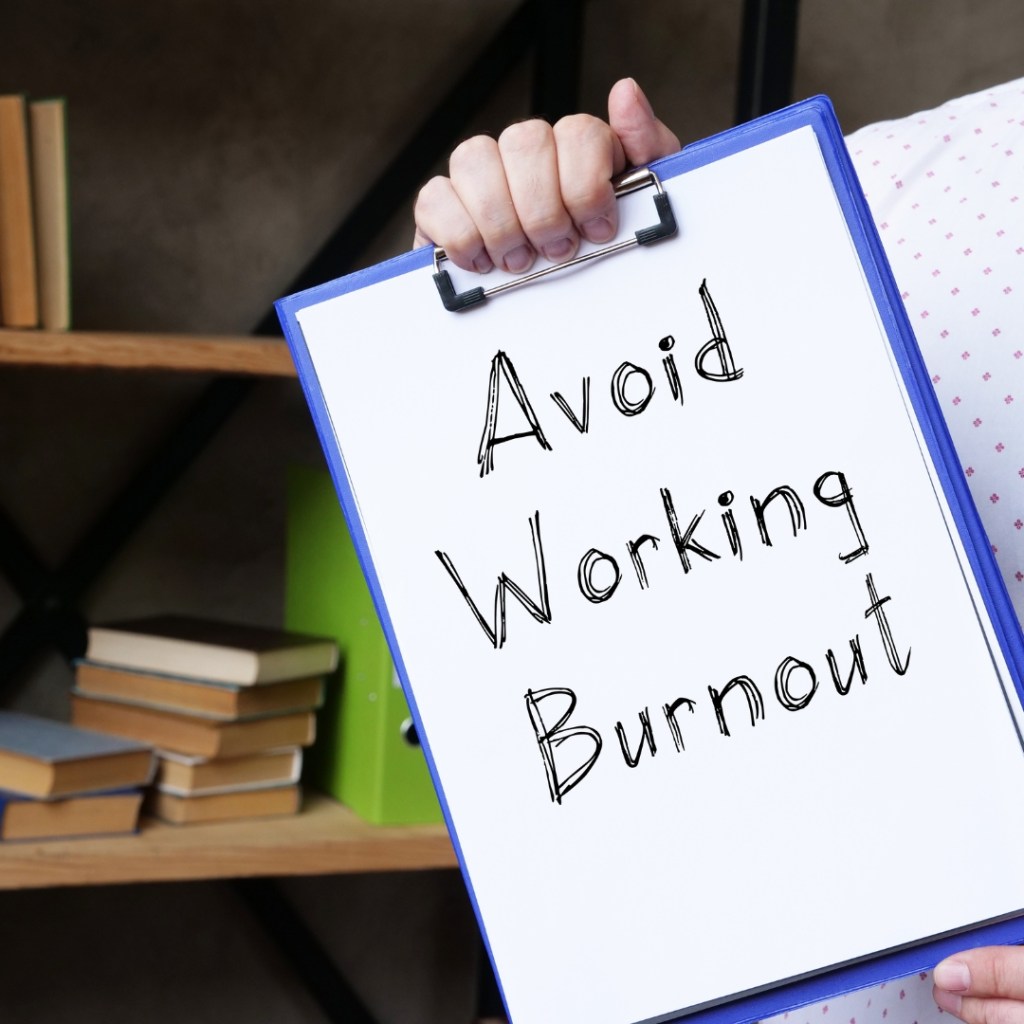 Avoid
Working
Burnout